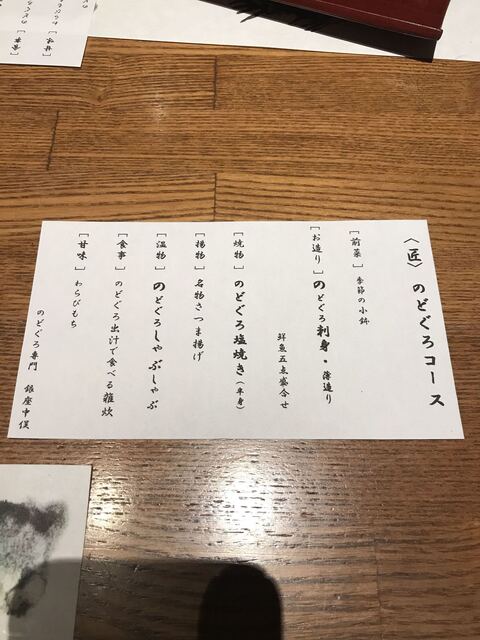 〈匠〉 のどぐろコース
[前菜] 季節の小鉢
[お造り] のどぐろ刺身・薄造り
鮮魚五点盛合せ
[焼物] のどぐろ塩焼き(半身)
[揚物] 名物さつま揚げ
[温物] のどぐろしゃぶしゃぶ
[食事] のどぐろ出汁で食べる雑炊
[甘味] わらびもち
のどぐろ専門 銀座中俣